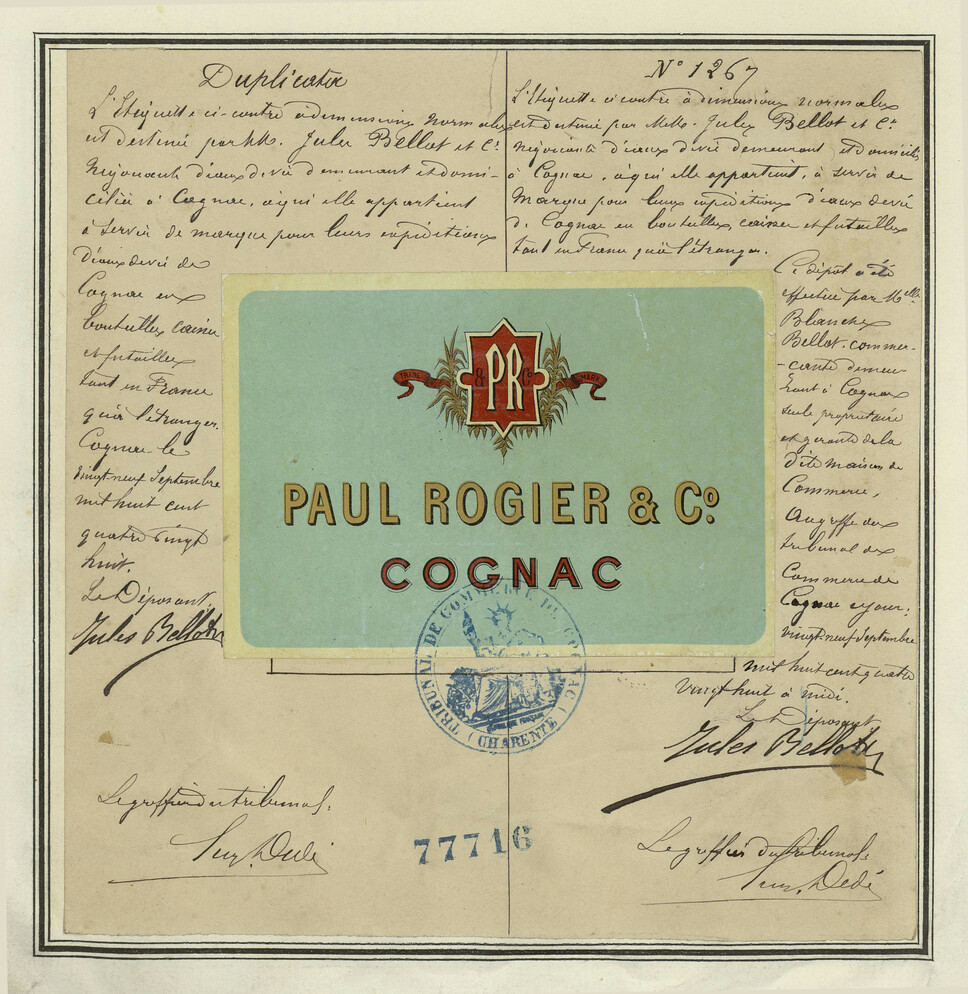 Duplicata
L'Etiquette ci-contre à dimensions normales
est destinée par MM. Jules Bellot et Cie
Négociants d'eaux de vie demeurant et domi-
ciliés à Cognac, à qui elle appartient
à servir de marque pour leurs expéditions
d'eaux de vie de
Cognac en
bouteilles caisses
et futailles
tant en France
qu'à l'étranger.
Cognac le
vingt-neuf Septembre
mil huit cent
quatre vingt
huit.
Le Déposant,
Jules Bellot
Le greffier du tribunal:
N° 1267
L'Etiquette ci contre à dimensions normales
est destinée par MM. Jules Bellot et Cie
négociants d'eaux de vie demeurant et domiciliés
à Cognac, à qui elle appartient, à servir de
Marque pour leurs expéditions d'eaux de vie
de Cognac en bouteilles, caisses et futailles
tant en France qu'à l'étranger.
Ce dépôt a été
effectué par Melle
Blanche
Bellot, commer-
-çante demeu-
rant à Cognac
seule propriétaire
et gérante de la
dite maison de
Commerce,
Au greffe du
tribunal de
Commerce de
Cognac ce jour,
vingt-neuf Septembre
mil huit cent quatre
vingt huit à midi.
Le Déposant
Jules Bellot
Le greffier du tribunal:
TRADE MARK
& PR Co
PAUL ROGIER & Co.
COGNAC
TRIBUNAL DE COMMERCE DE COGNAC
(CHARENTE)
77716